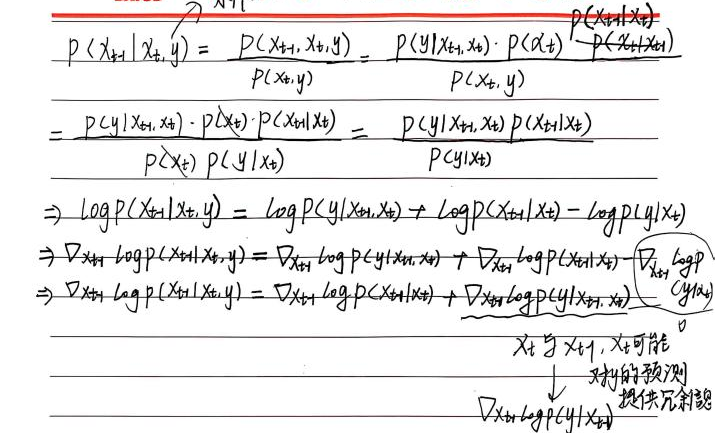 P(x_{t-1}|x_t,y) = \frac{P(x_{t-1}, x_t, y)}{P(x_t,y)} = \frac{P(y|x_{t-1},x_t) \cdot P(x_t) \cdot P(x_{t-1}|x_t)}{P(x_t,y)}
= \frac{P(y|x_{t-1},x_t) \cdot P(x_t) \cdot P(x_{t-1}|x_t)}{P(x_t) P(y|x_t)} = \frac{P(y|x_{t-1},x_t) P(x_{t-1}|x_t)}{P(y|x_t)}
⇒ log P(x_{t-1}|x_t,y) = log P(y|x_{t-1},x_t) + log P(x_{t-1}|x_t) - log p(y|x_t)
⇒ ∇_{x_{t-1}} log p(x_{t-1}|x_t,y) = ∇_{x_{t-1}} log p(y|x_{t-1},x_t) + ∇_{x_{t-1}} log p(x_{t-1}|x_t) - ∇_{x_{t-1}} log p(y|x_t)
⇒ ∇_{x_{t-1}} log p(x_{t-1}|x_t,y) = ∇_{x_{t-1}} log p(x_{t-1}|x_t) + ∇_{x_{t-1}} log p(y|x_{t-1},x_t)
0
x_t 与 x_{t-1}, x_t 可能
对y的预测
提供冗余信息
∇_{x_{t-1}} log p(y|x_{t-1})